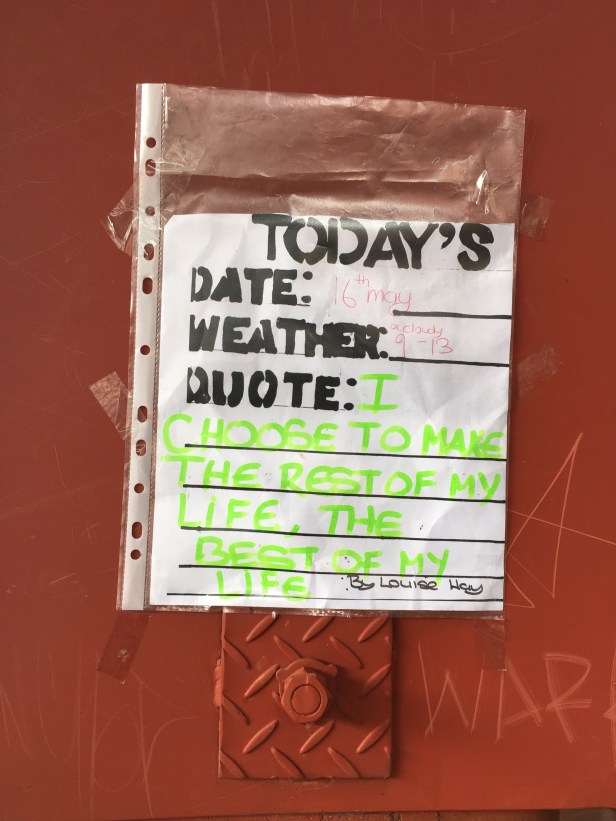 TODAY'S
DATE: 16th may
WEATHER: cloudy 9-13
QUOTE: I
CHOOSE TO MAKE
THE REST OF MY
LIFE, THE
BEST OF MY
LIFE By Louise Hay
WAR